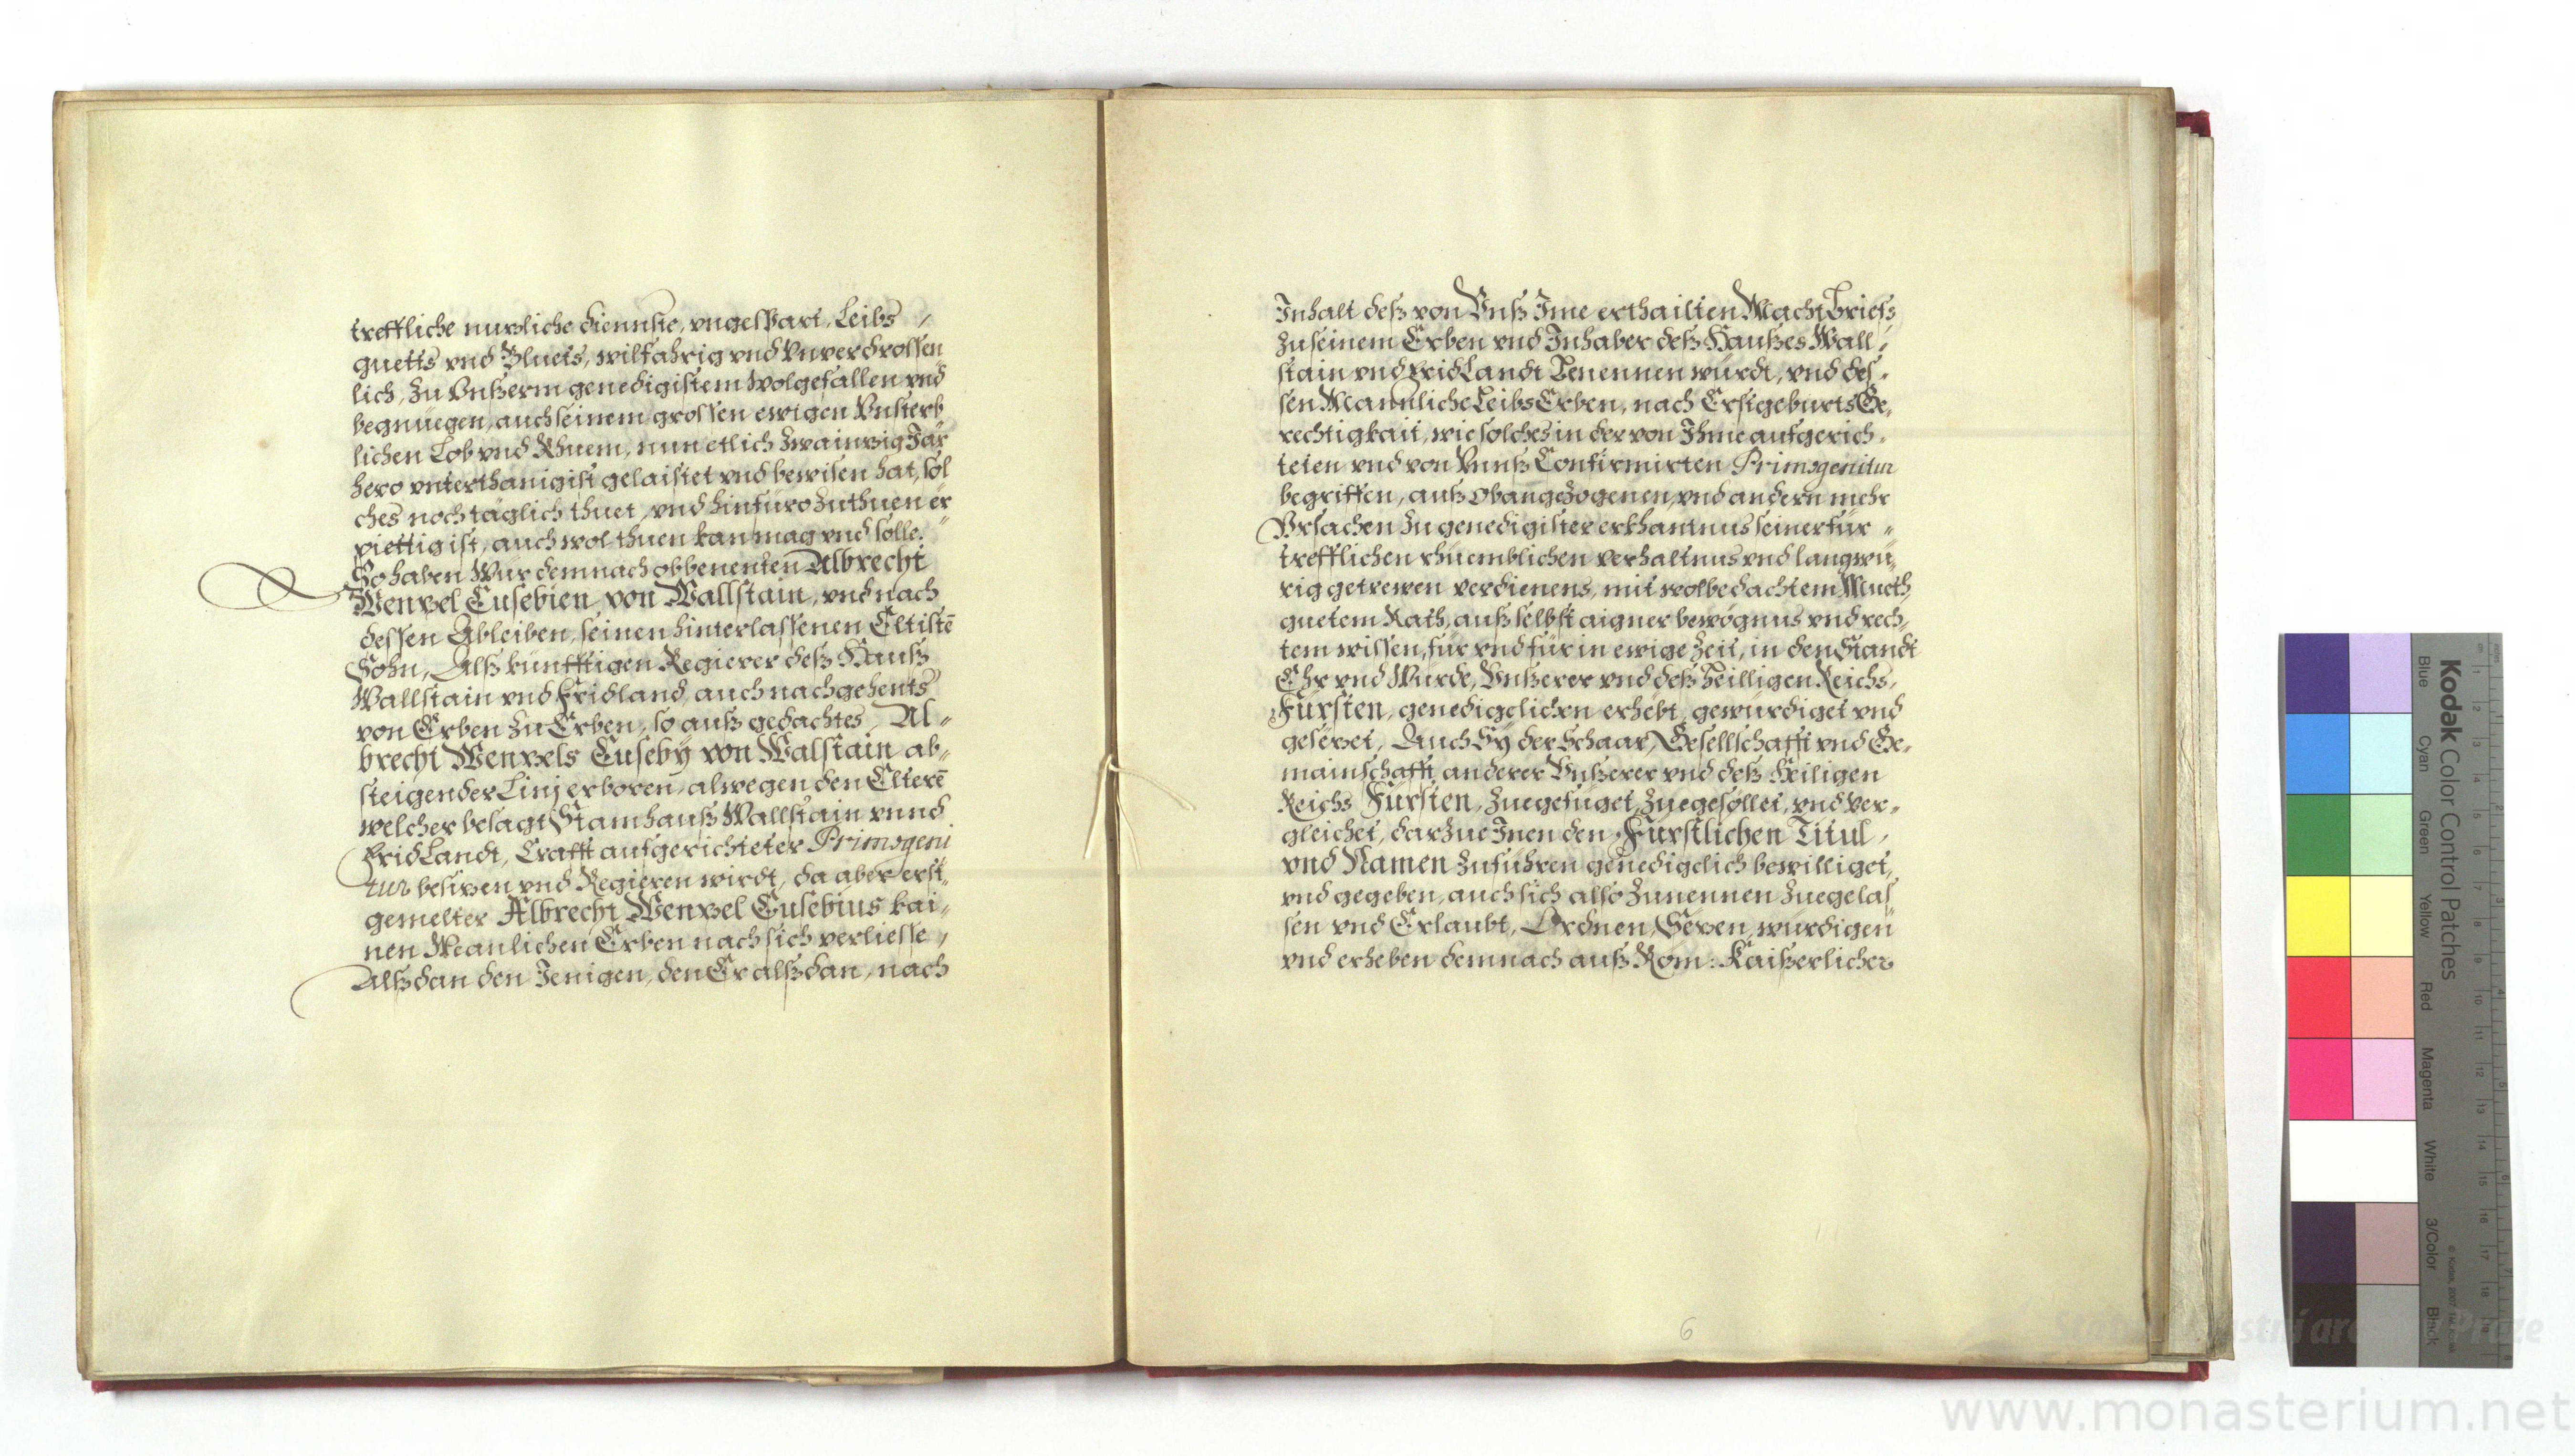 treffliche nuzliche diennste, vngespart, Leibs,
guetts vnd Bluets, wilfahrig vnd Vnverdrossen
lich, zu Vnßerm genedigistem wolgefallen vnd
begnüegen, auch seinem grossen ewigen Vnsterb
lichen Lob vnd Rhuem, nun etlich zwainzig Jar
hero vnterthanigist gelaistet vnd bewisen hat, sol
ches noch täglich thuet, vnd hinfüro zuthuen er
piettig ist, auch wol thuen kan mag vnd solle.
So haben Wür demnach obbenenten Albrecht
Wenzel Eusebien von Wallstain, vnd nach
dessen Ableiben, seinen hinterlassenen Eltistē
Sohn, Alß künfftigen Regierer deß Hauß
Wallstain vnd Fridland, auch nachgehents
von Erben zu Erben, so auß gedachtes, Al„
brecht Wenzels Euseby von Walstain ab„
steigender Linj erboren, alwegen den Elterē
welcher besagt Stamhauß Wallstain vnnd
FridLandt, Crafft aufgerichteter Primogeni
tur besizen vnd Regieren wirdt, da aber erst„
gemelter Albrecht Wenzel Eusebius kai„
nen Manlichen Erben nach sich verliesse,
Alßdan den Jenigen, den Er alßdan, nach
Inhalt deß von Vnß Ime erthailten Macht Briefs
zu seinem Erben vnd Inhaber deß Haußes Wall,
stain vnd FridLandt Benennen würdt, vnd des,
sen Mannliche LeibsErben, nach ErstgeburtsGe,
rechtigkait, wie solches in der von Ihme aufgerich,
teten vnd von Vnnß Confirmirten Primogenitur
begriffen, auß obangezogenen, vnd andern mehr
Vrsachen zu genedigister erkhantnus seiner für„
trefflichen rhuemblichen verhaltnus vnd langwü„
rig getrewen verdienens, mit wolbedachtem Mueth,
guetem Rath, auß selbst aigner bewögnus vnd rech,
tem wissen, für vnd für in ewige Zeit, in den Standt
Ehr vnd Würde, Vnßerer vnd deß Heilligen Reichs,
Fürsten, genedigclichen erhebt, gewürdiget vnd
gesezet, Auch Sÿ der Schaar, Gesellschafft vnd Ge,
mainschafft anderer Vnßerer vnd deß Heiligen
Reichs Fürsten, zuegefüget, zuegesöllet, vnd ver„
gleichet, darzue Inen den Fürstlichen Titul,
vnd Namen zuführen genedigclich bewilliget,
vnd gegeben, auch sich also zunennen zuegelas
sen vnd Erlaubt, Ordnen, Sezen, würdigen
vnd erheben demnach auß Röm: Kaißerlicher
6
Kodak Color Control Patches
Blue Cyan Green Yellow Red Magenta White 3/Color Black
www.monasterium.net